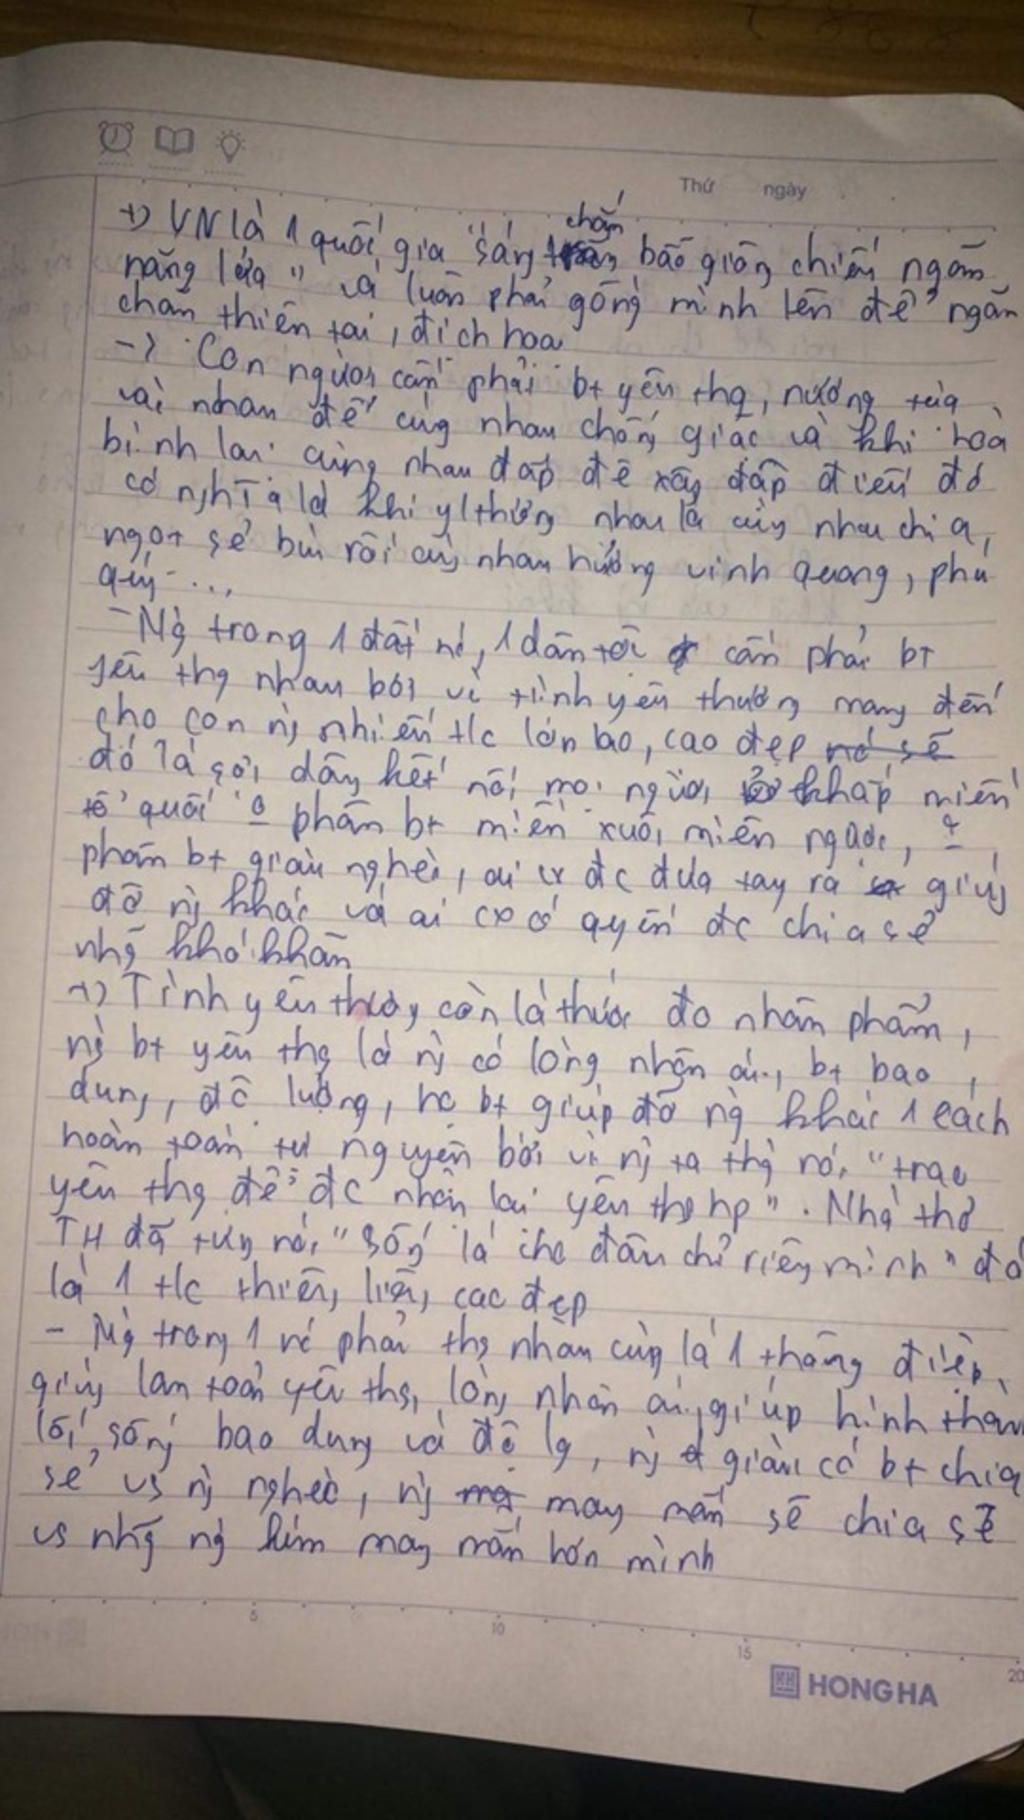 Thứ ngày
+) VN là 1 quốc gia "sáng chắn bão giông chiều ngăn
nắng lửa" và luôn phải gồng mình lên để ngăn
chặn thiên tai, địch hoạ
-> Con người cần phải bt yêu thg, nương tựa
vài nhau để cùng nhau chống giặc và khi hoà
bình lại cùng nhau đáp đê xây đập điều đó
có nghĩa là khi y/thương nhau là cùng nhau chia,
ngọt sẻ bùi rồi cùng nhau hưởng vinh quang, phú
quý ...
- Ng trong 1 đất nc, 1 dân tộc cần phải bt
yêu thg nhau bởi vì tình yêu thương mang đến
cho con ng nhiều t/c lớn lao, cao đẹp nó sẽ
đó là sợi dây kết nối mọi người khắp miền
tổ quốc 0 phân bt miền xuôi miền ngược, 0
phân bt giàu nghèo, ai cx đc đưa tay ra giúp
đỡ ng khác và ai cx có quyền đc chia sẻ
nhg khó khăn
+) Tình yêu thương còn là thước đo nhân phẩm,
ng bt yêu thg là ng có lòng nhân ái, bt bao
dung, độ lượng, họ bt giúp đỡ ng khác 1 cách
hoàn toàn tự nguyện bởi vì ng ta thg nói "trao
yêu thg để đc nhận lại yêu thg hp". Nhà thơ
TH đã từng nói "sống là cho đâu chỉ riêng mình" đó
là 1 t/c thiêng liêng cao đẹp
- Ng trong 1 nc phải thg nhau cùng là 1 thông điệp
giúp lan toả yêu thg, lòng nhân ái, giúp hình thành
lối sống bao dung và độ lg, ng giàu có bt chia
sẻ vs ng nghèo, ng may mắn sẽ chia sẻ
vs nhg ng kém may mắn hơn mình
5 10 15 20
HONG HA